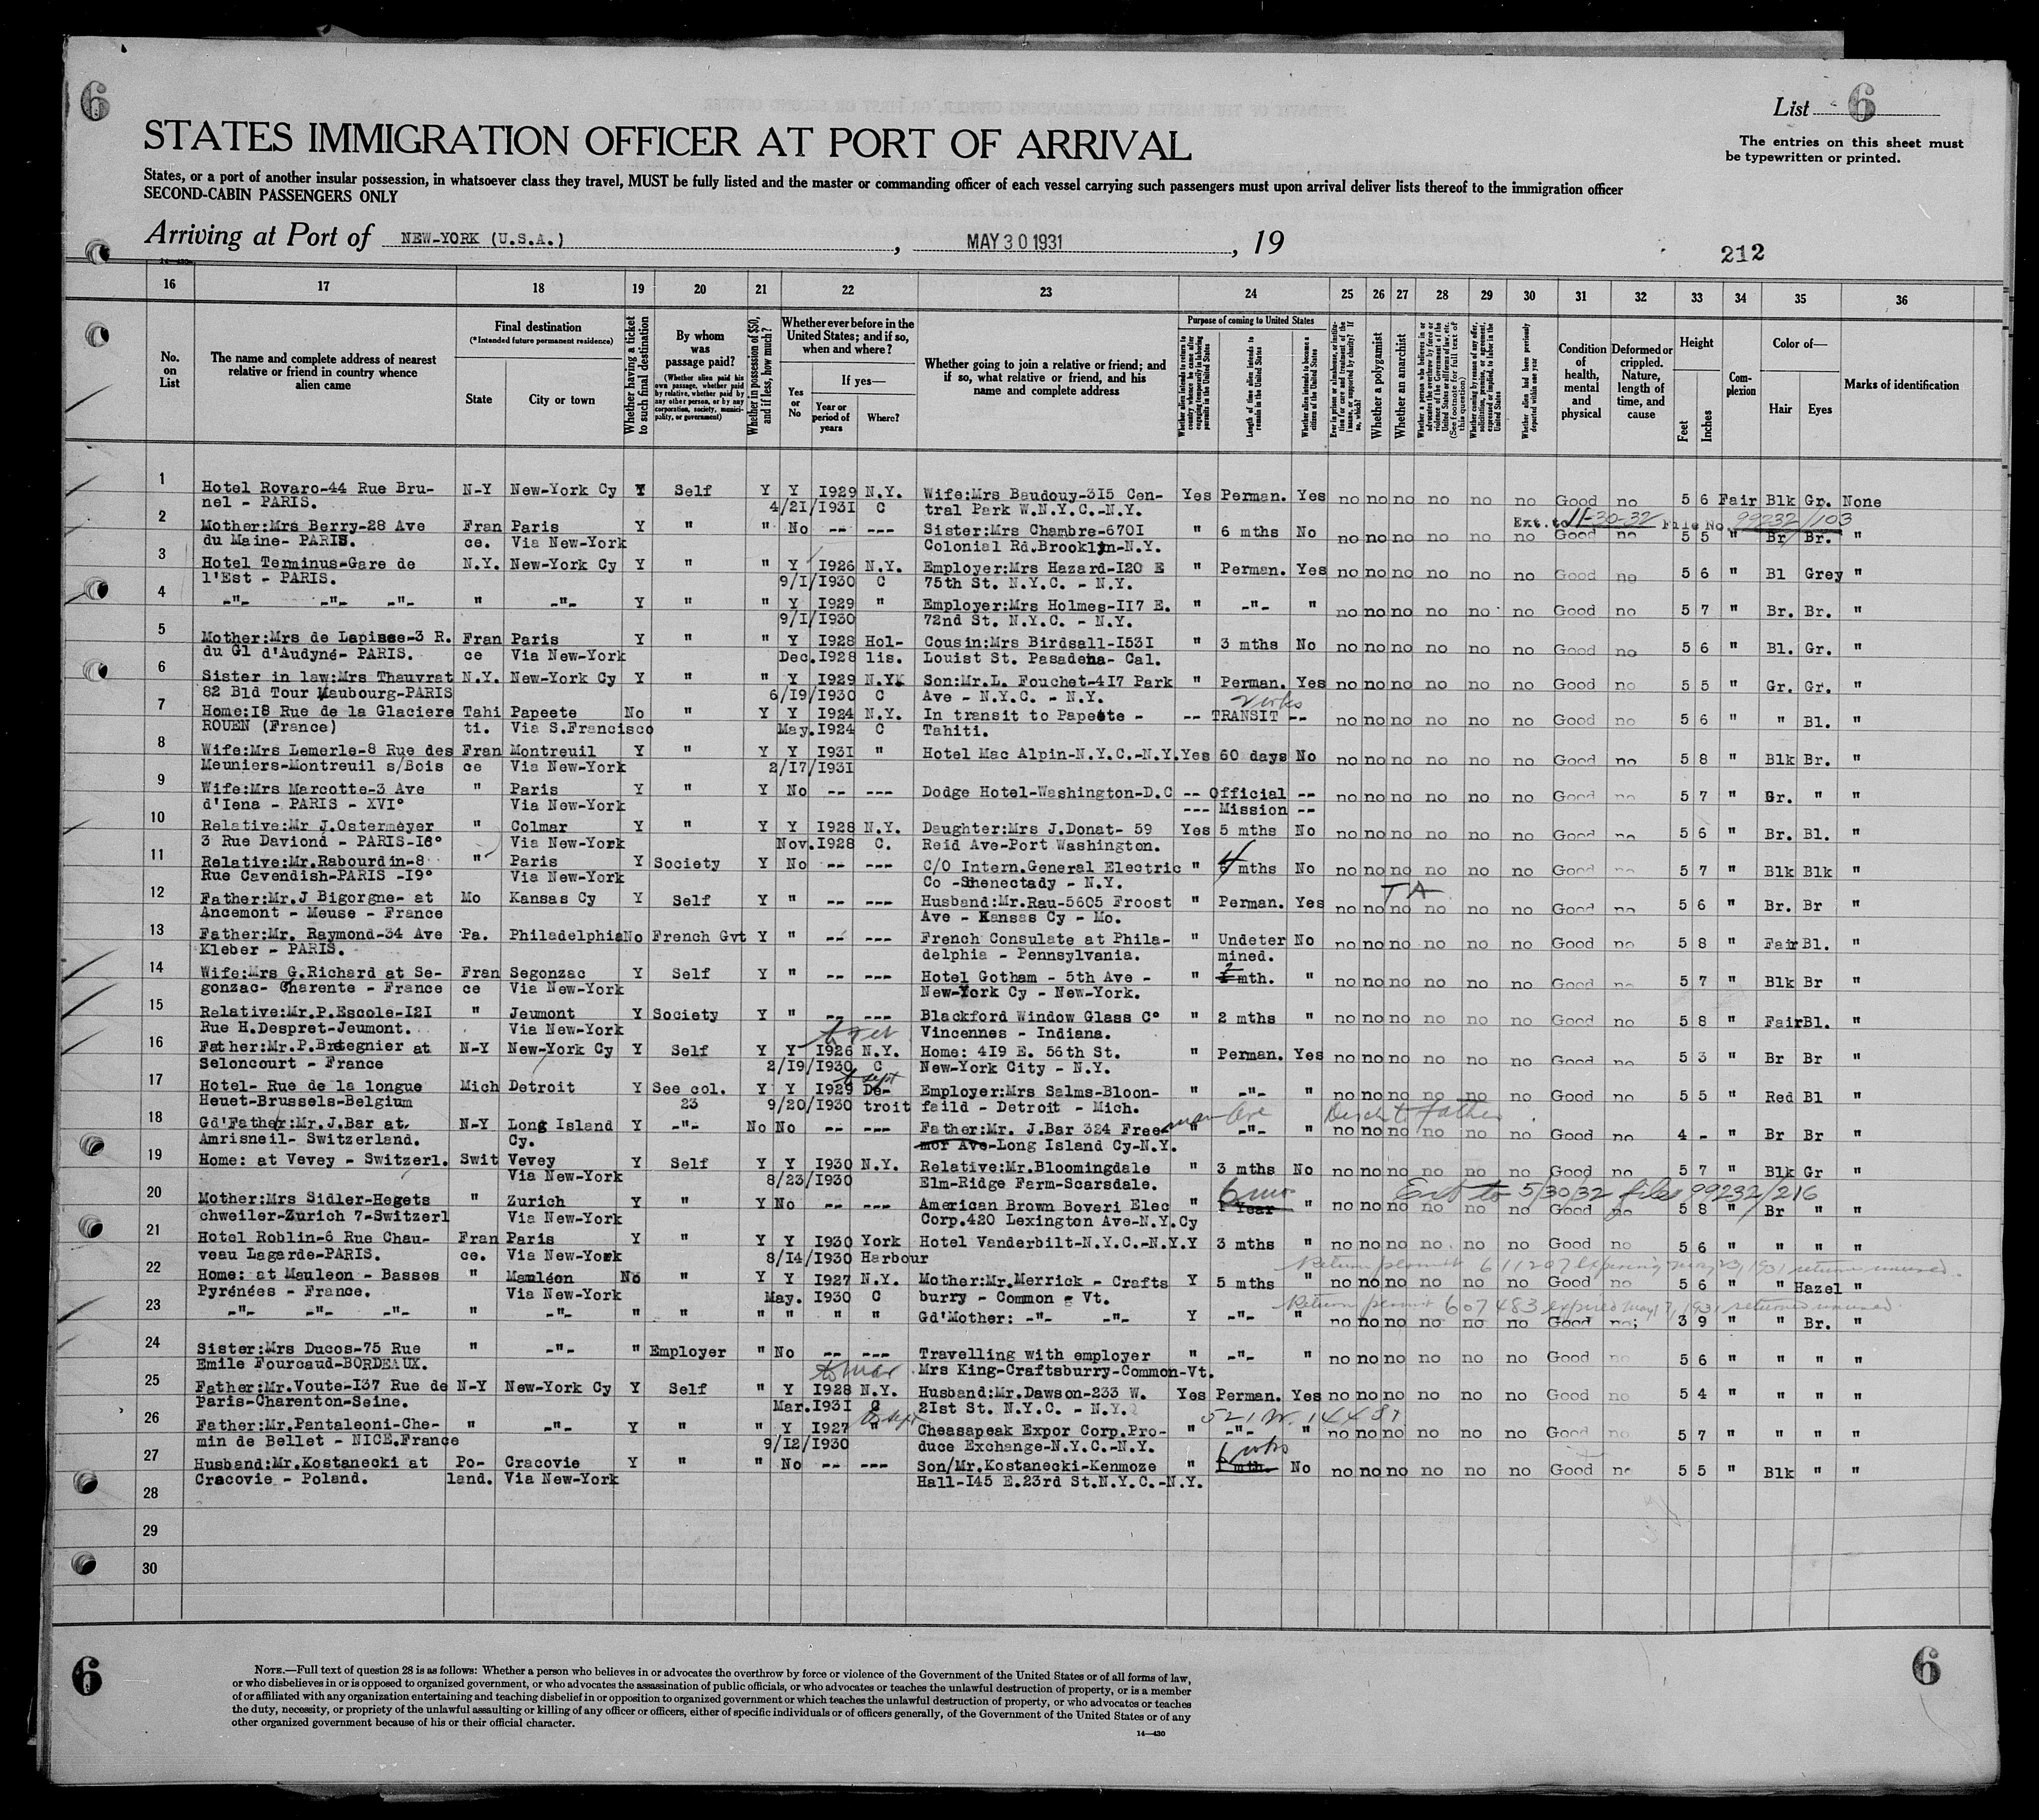 6
List 6
STATES IMMIGRATION OFFICER AT PORT OF ARRIVAL
The entries on this sheet must
be typewritten or printed.
States, or a port of another insular possession, in whatsoever class they travel, MUST be fully listed and the master or commanding officer of each vessel carrying such passengers must upon arrival deliver lists thereof to the immigration officer
SECOND-CABIN PASSENGERS ONLY
Arriving at Port of NEW-YORK (U.S.A.), MAY 30 1931, 19
212
16 17 18 19 20 21 22 23 24 25 26 27 28 29 30 31 32 33 34 35 36
No. on List
The name and complete address of nearest relative or friend in country whence alien came
Final destination
(*Intended future permanent residence)
State
City or town
Whether having a ticket to such final destination
By whom was passage paid?
(Whether alien paid his own passage, whether paid by relative, whether paid by any other person, or by any corporation, society, municipality, or government)
Whether in possession of $50, and if less, how much?
Whether ever before in the United States; and if so, when and where?
Yes or No
If yes—
Year or period of years
Where?
Whether going to join a relative or friend; and if so, what relative or friend, and his name and complete address
Purpose of coming to United States
Length of time alien intends to remain in the United States
Whether alien intends to become a citizen of the United States
Whether a polygamist
Whether an anarchist
Whether alien had been previously deported within one year
Condition of health, mental and physical
Deformed or crippled. Nature, length of time, and cause
Height
Feet
Inches
Com-plexion
Color of—
Hair
Eyes
Marks of identification
1 Hotel Rovaro-44 Rue Bru- N-Y New-York Cy Y Self Y Y I929 N.Y. Wife:Mrs Baudouy-3I5 Cen- Yes Perman. Yes no no no no no no Good no 5 6 Fair Blk Gr. None
nel - PARIS. 4/21/I931 C tral Park W.N.Y.C.-N.Y.
Ext. to 11-30-32 File No. 99232/103
2 Mother:Mrs Berry-28 Ave Fran Paris Y " " No -- --- Sister:Mrs Chambre-670I " 6 mths No no no no no no no Good no 5 5 " Br Br. "
du Maine- PARIS. ce. Via New-York Colonial Rd.Brooklyn-N.Y.
3 Hotel Terminus-Gare de N.Y. New-York Cy Y " " Y I926 N.Y. Employer:Mrs Hazard-I20 E " Perman. Yes no no no no no no Good no 5 6 " Bl Grey "
l'Est - PARIS. 9/I/I930 C 75th St. N.Y.C. - N.Y.
4 -"- -"- -"- " -"- Y " " Y I929 " Employer:Mrs Holmes-II7 E. " -"- " no no no no no no Good no 5 7 " Br. Br. "
9/I/I930 72nd St. N.Y.C. - N.Y.
5 Mother:Mrs de Lapisse-3 R. Fran Paris Y " " Y I928 Hol- Cousin:Mrs Birdsall-I53I " 3 mths No no no no no no no Good no 5 6 " Bl. Gr. "
du Gl d'Audyné- PARIS. ce Via New-York Dec.I928 lis. Louist St. Pasadena- Cal.
6 Sister in law:Mrs Thauvrat N.Y. New-York Cy Y " " Y I929 N.Y. Son:Mr.L. Fouchet-4I7 Park " Perman. Yes no no no no no no Good no 5 5 " Gr. Gr. "
82 Bld Tour Maubourg-PARIS 6/I9/I930 C Ave - N.Y.C. - N.Y.
7 Home:I8 Rue de la Glaciere Tahi Papeete No " Y Y I924 N.Y. In transit to Papeete - -- TRANSIT -- no no no no no no Good no 5 6 " " Bl. "
ROUEN (France) ti. Via S.Francisco May.I924 C Tahiti.
8 Wife:Mrs Lemerle-8 Rue des Fran Montreuil Y " Y Y I93I " Hotel Mac Alpin-N.Y.C.-N.Y. Yes 60 days No no no no no no no Good no 5 8 " Blk Br. "
Meuniers-Montreuil s/Bois ce Via New-York 2/I7/I93I
9 Wife:Mrs Marcotte-3 Ave " Paris Y " Y No -- --- Dodge Hotel-Washington-D.C -- Official -- no no no no no no Good no 5 7 " Gr. " "
d'Iena - PARIS - XVI° Via New-York --- Mission --
10 Relative:Mr J.Ostermeyer " Colmar Y " Y Y I928 N.Y. Daughter:Mrs J.Donat- 59 Yes 5 mths No no no no no no no Good no 5 6 " Br. Bl. "
3 Rue Daviond - PARIS-I6° Via New-York Nov.I928 C. Reid Ave-Port Washington.
11 Relative:Mr.Rabourdin-8 " Paris Y Society Y No -- --- C/O Intern.General Electric " 4 mths No no no no no no no Good no 5 7 " Blk Blk "
Rue Cavendish-PARIS -I9° Via New-York Co -Shenectady - N.Y.
T A
12 Father:Mr.J Bigorgne- at Mo Kansas Cy Y Self Y " -- --- Husband:Mr.Rau-5605 Froost " Perman. Yes no no no no no no Good no 5 6 " Br. Br "
Ancemont - Meuse - France Ave - Kansas Cy - Mo.
13 Father:Mr. Raymond-34 Ave Pa. Philadelphia No French Gvt Y " -- --- French Consulate at Phila- " Undeter No no no no no no no Good no 5 8 " Fair Bl. "
Kleber - PARIS. delphia - Pennsylvania. mined.
14 Wife:Mrs G.Richard at Se- Fran Segonzac Y Self Y " -- --- Hotel Gotham - 5th Ave - " 2 mth. " no no no no no no Good no 5 7 " Blk Br "
gonzac- Charente - France ce Via New-York New-York Cy - New-York.
15 Relative:Mr.P.Escole-I2I " Jeumont Y Society Y " -- --- Blackford Window Glass C° " 2 mths " no no no no no no Good no 5 8 " Fair Bl. "
Rue H.Despret-Jeumont. Via New-York Vincennes - Indiana.
16 Father:Mr.P.Bretegnier at N-Y New-York Cy Y Self Y Y I926 N.Y. Home: 4I9 E. 56th St. " Perman. Yes no no no no no no Good no 5 3 " Br Br "
Seloncourt - France 2/I9/I930 C New-York City - N.Y.
to sept
17 Hotel- Rue de la longue Mich Detroit Y See col. Y Y I929 De- Employer:Mrs Salms-Bloon- " -"- " no no no no no no Good no 5 5 " Red Bl "
Heuet-Brussels-Belgium 23 9/20/I930 troit faild - Detroit - Mich.
18 Gd'Father:Mr. J.Bar at N-Y Long Island Y -"- No No -- --- Father:Mr. J.Bar 324 Free- " -"- " no no no no no no Good no 4 - " Br Br "
Amrisneil- Switzerland. Cy. mor Ave-Long Island Cy-N.Y.
19 Home: at Vevey - Switzerl. Swit Vevey Y Self Y Y I930 N.Y. Relative:Mr.Bloomingdale " 3 mths No no no no no no no Good no 5 7 " Blk Gr "
Via New-York 8/23/I930 Elm-Ridge Farm-Scarsdale.
6 mo Ext to 5/30/32 files 99232/216
20 Mother:Mrs Sidler-Hegets " Zurich Y " Y No -- --- American Brown Boveri Elec " I Year " no no no no no no Good no 5 8 " Br " "
chweiler-Zurich 7-Switzerl Via New-York Corp.420 Lexington Ave-N.Y.Cy
21 Hotel Roblin-6 Rue Chau- Fran Paris Y " Y Y I930 York Hotel Vanderbilt-N.Y.C.-N.Y. Y 3 mths " no no no no no no Good no 5 6 " " " "
veau Lagarde-PARIS. ce. Via New-York 8/I4/I930 Harbour
Return permit 611207 expiring may 23, 1931 returned unused.
22 Home: at Mauleon - Basses " Mauléon No " Y Y I927 N.Y. Mother:Mr.Merrick - Crafts Y 5 mths " no no no no no no Good no 5 6 " " Hazel "
Pyrénées - France. Via New-York May. I930 C burry - Common - Vt.
Return permit 607483 expired may 17, 1931 returned unused.
23 -"- -"- -"- " -"- " " " " " " Gd'Mother: -"- -"- Y -"- " no no no no no no Good no; 3 9 " " Br. "
24 Sister:Mrs Ducos-75 Rue " -"- " Employer " No -- --- Travelling with employer " -"- " no no no no no no Good no 5 6 " " " "
Emile Fourcaud-BORDEAUX. Mrs King-Craftsburry-Common-Vt.
to Mar
25 Father:Mr.Voute-I37 Rue de N-Y New-York Cy Y Self " Y I928 N.Y. Husband:Mr.Dawson-233 W. Yes Perman. Yes no no no no no no Good no 5 4 " " " "
Paris-Charenton-Seine. Mar.I93I C 2Ist St. N.Y.C. - N.Y.
to sept 521 W. 144 St
26 Father:Mr.Pantaleoni-Che- " -"- Y " " Y I927 " Cheasapeak Expor Corp.Pro- " -"- " no no no no no no Good no 5 7 " " " "
min de Bellet - NICE.France 9/I2/I930 duce Exchange-N.Y.C.-N.Y.
27 Husband:Mr.Kostanecki at Po- Cracovie Y " " No -- --- Son/Mr.Kostanecki-Kenmoze " No no no no no no no Good no 5 5 " Blk " "
Cracovie - Poland. land. Via New-York Hall-I45 E.23rd St.N.Y.C.-N.Y.
28
29
30
6
6
NOTE.—Full text of question 28 is as follows: Whether a person who believes in or advocates the overthrow by force or violence of the Government of the United States or of all forms of law,
or who disbelieves in or is opposed to organized government, or who advocates the assassination of public officials, or who advocates or teaches the unlawful destruction of property, or is a member
of or affiliated with any organization entertaining and teaching disbelief in or opposition to organized government or which teaches the unlawful destruction of property, or who advocates or teaches
the duty, necessity, or propriety of the unlawful assaulting or killing of any officer or officers, either of specific individuals or of officers generally, of the Government of the United States or of any
other organized government because of his or their official character.
14—430